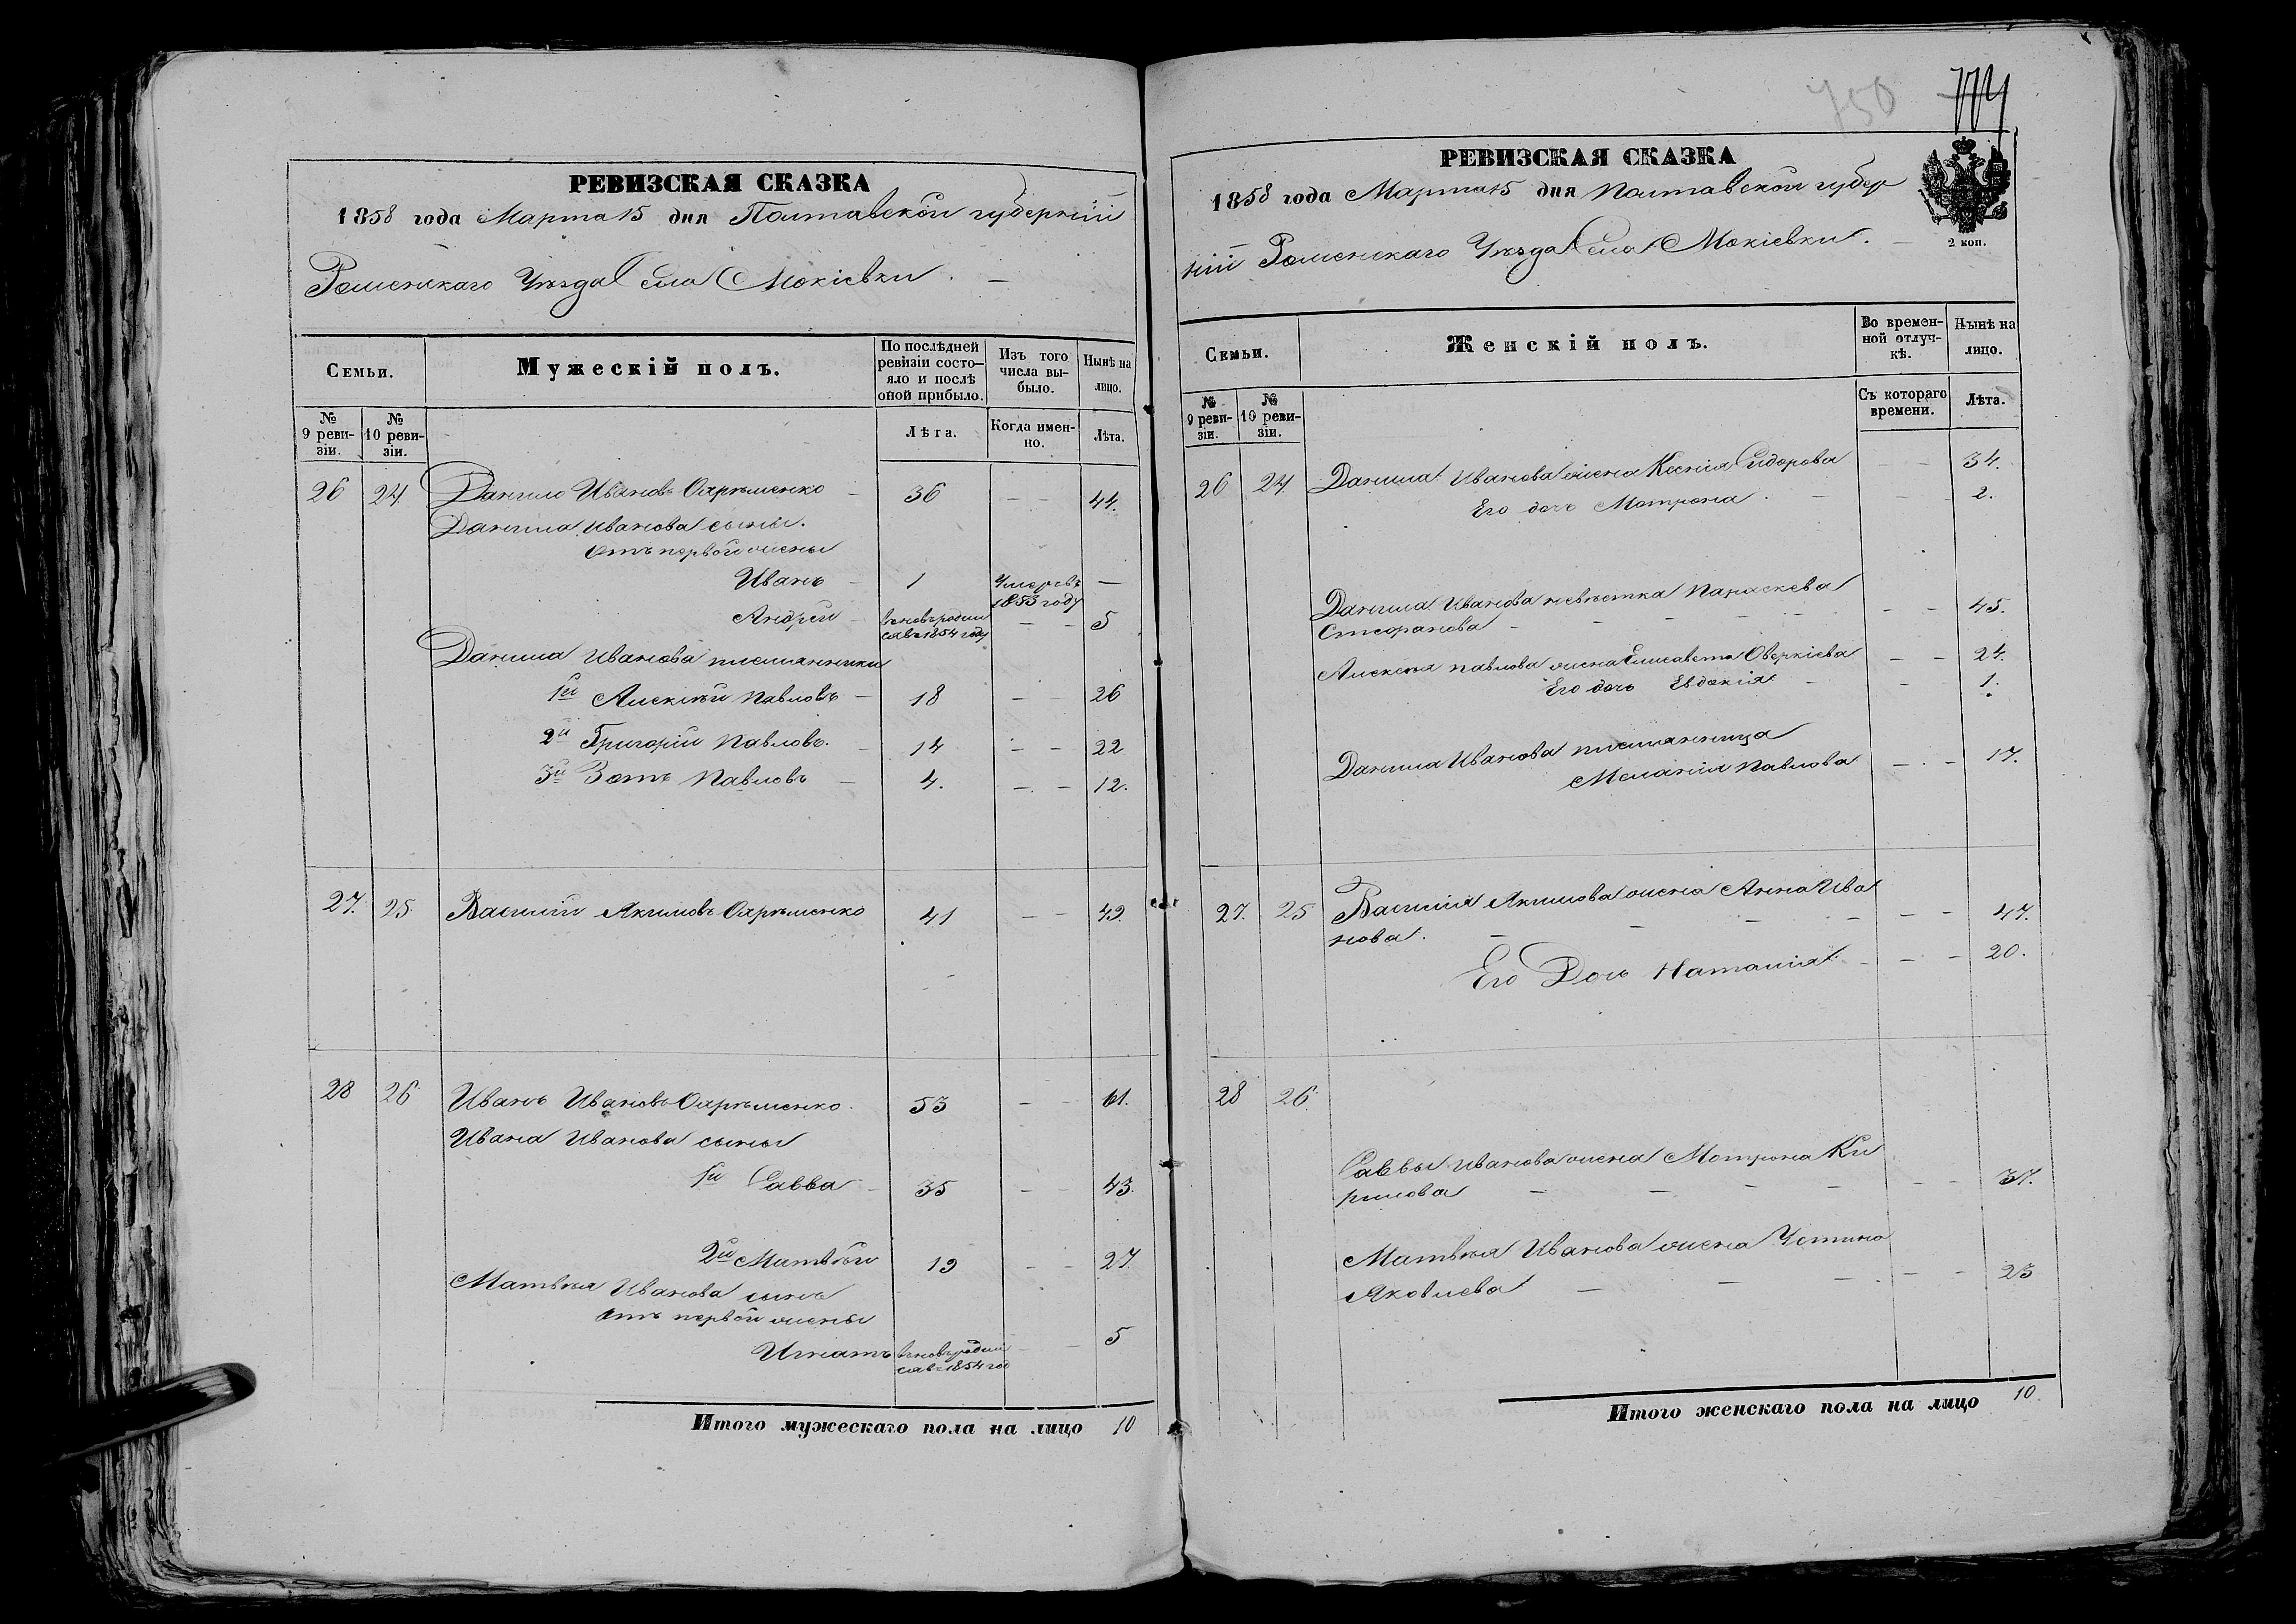 РЕВИЗСКАЯ СКАЗКА
1858 года Марта 15 дня Полтавской губерніи
Роменскаго Уѣзда Села Мокіевки.
Семьи.
Мужескій полъ.
По послѣдней ревизіи состо-
яло и послѣ
оной прибыло.
Изъ того
числа вы-
было.
Нынѣ на
лицо.
№
9 реви-
зіи.
№
10 реви-
зіи.
Лѣта.
Когда имен-
но.
Лѣта.
26 24 Данило Ивановъ Охрѣменко 36 44.
Данила Иванова сыны.
отъ первой жены
Иванъ 1 Умеръ въ 1853 году —
Андрей вновь родил
ся въ 1854 году 5
Данила Иванова племянники
1й Алексѣй Павловъ 18 26
2й Григорій Павловъ. 14 22
3й Зотъ Павловъ 4. 12.
27. 25. Василій Якимовъ Охрѣменко 41 49.
28 26 Иванъ Ивановъ Охрѣменко. 53 61.
Ивана Иванова сыны
1й Савва 35 43.
2й Матвѣй 19 27.
Матвѣя Иванова сынъ
отъ первой жены
Игнатъ вновь родил
ся въ 1854 год 5
Итого мужескаго пола на лицо 10
750 774
РЕВИЗСКАЯ СКАЗКА
1858 года Марта 15 дня Полтавской губер
ніи Роменскаго Уѣзда Села Мокіевки.
2 коп.
Семьи.
Женскій полъ.
Во времен-
ной отлуч-
кѣ.
Нынѣ на
лицо.
№
9 реви-
зіи.
№
10 реви-
зіи.
Съ котораго
времени.
Лѣта.
26 24. Данила Иванова жена Ксенія Сидорова 34.
Его дочь Мотрона. 2.
Данила Иванова невѣстка Параскева
Стефанова 45.
Алексѣя Павлова жена Елисавета Оверкіева 24.
Его дочь Евдокія 1.
Данила Иванова племянница
Меланія Павлова 17.
27. 25 Василія Якимова жена Анна Ива
нова. 47.
Его Дочь Наталія. 20.
28 26.
Саввы Иванова жена Мотрона Ки
рилова 37.
Матвѣя Иванова жена Устина
Яковлева 23
Итого женскаго пола на лицо 10.